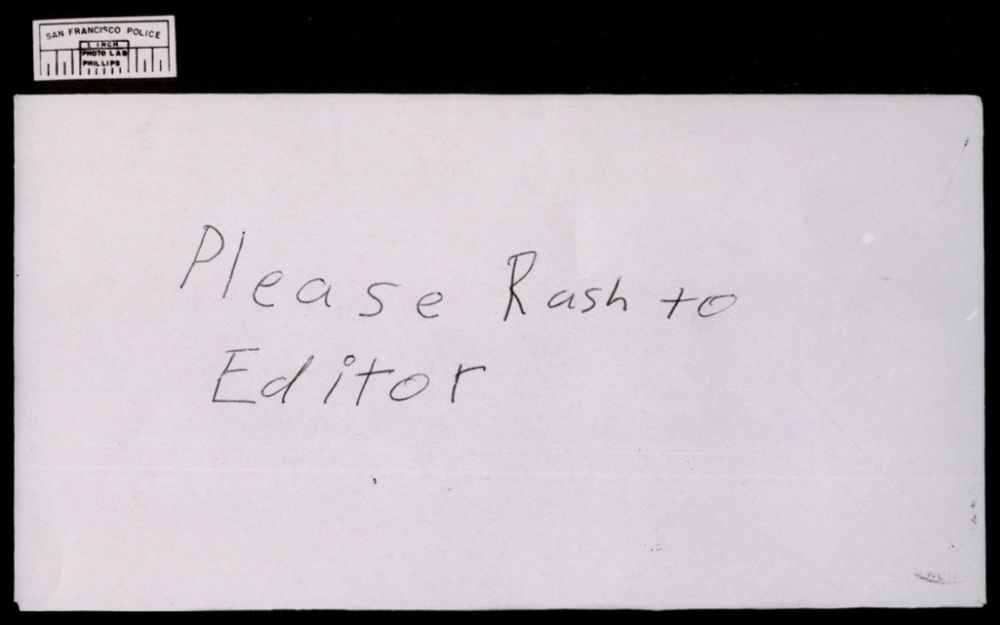 SAN FRANCISCO POLICE
1 INCH
PHOTO LAB
PHILLIPS
Please Rush to
Editor